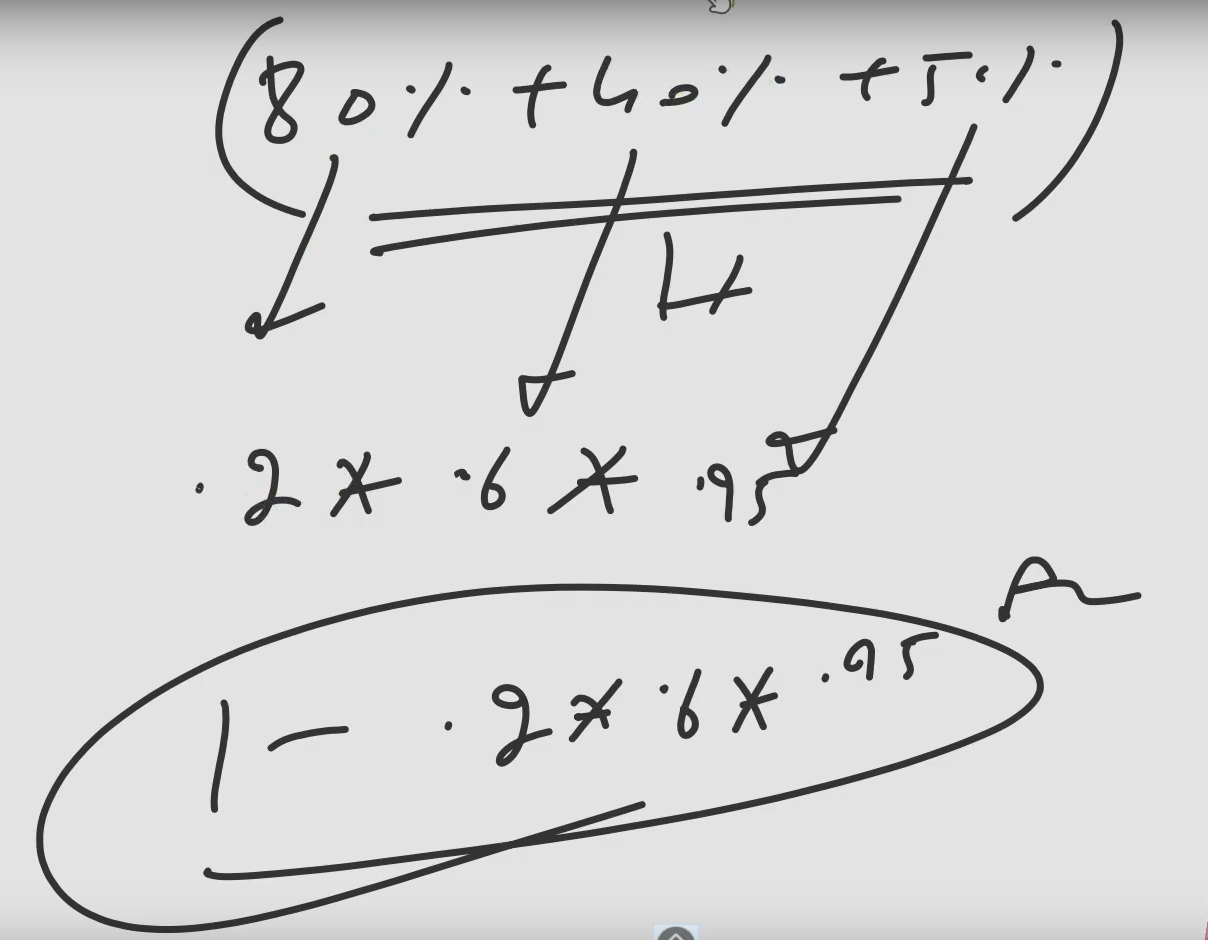 (80% + 40% + 5%)
.2 * .6 * .95
1 - .2 * .6 * .95